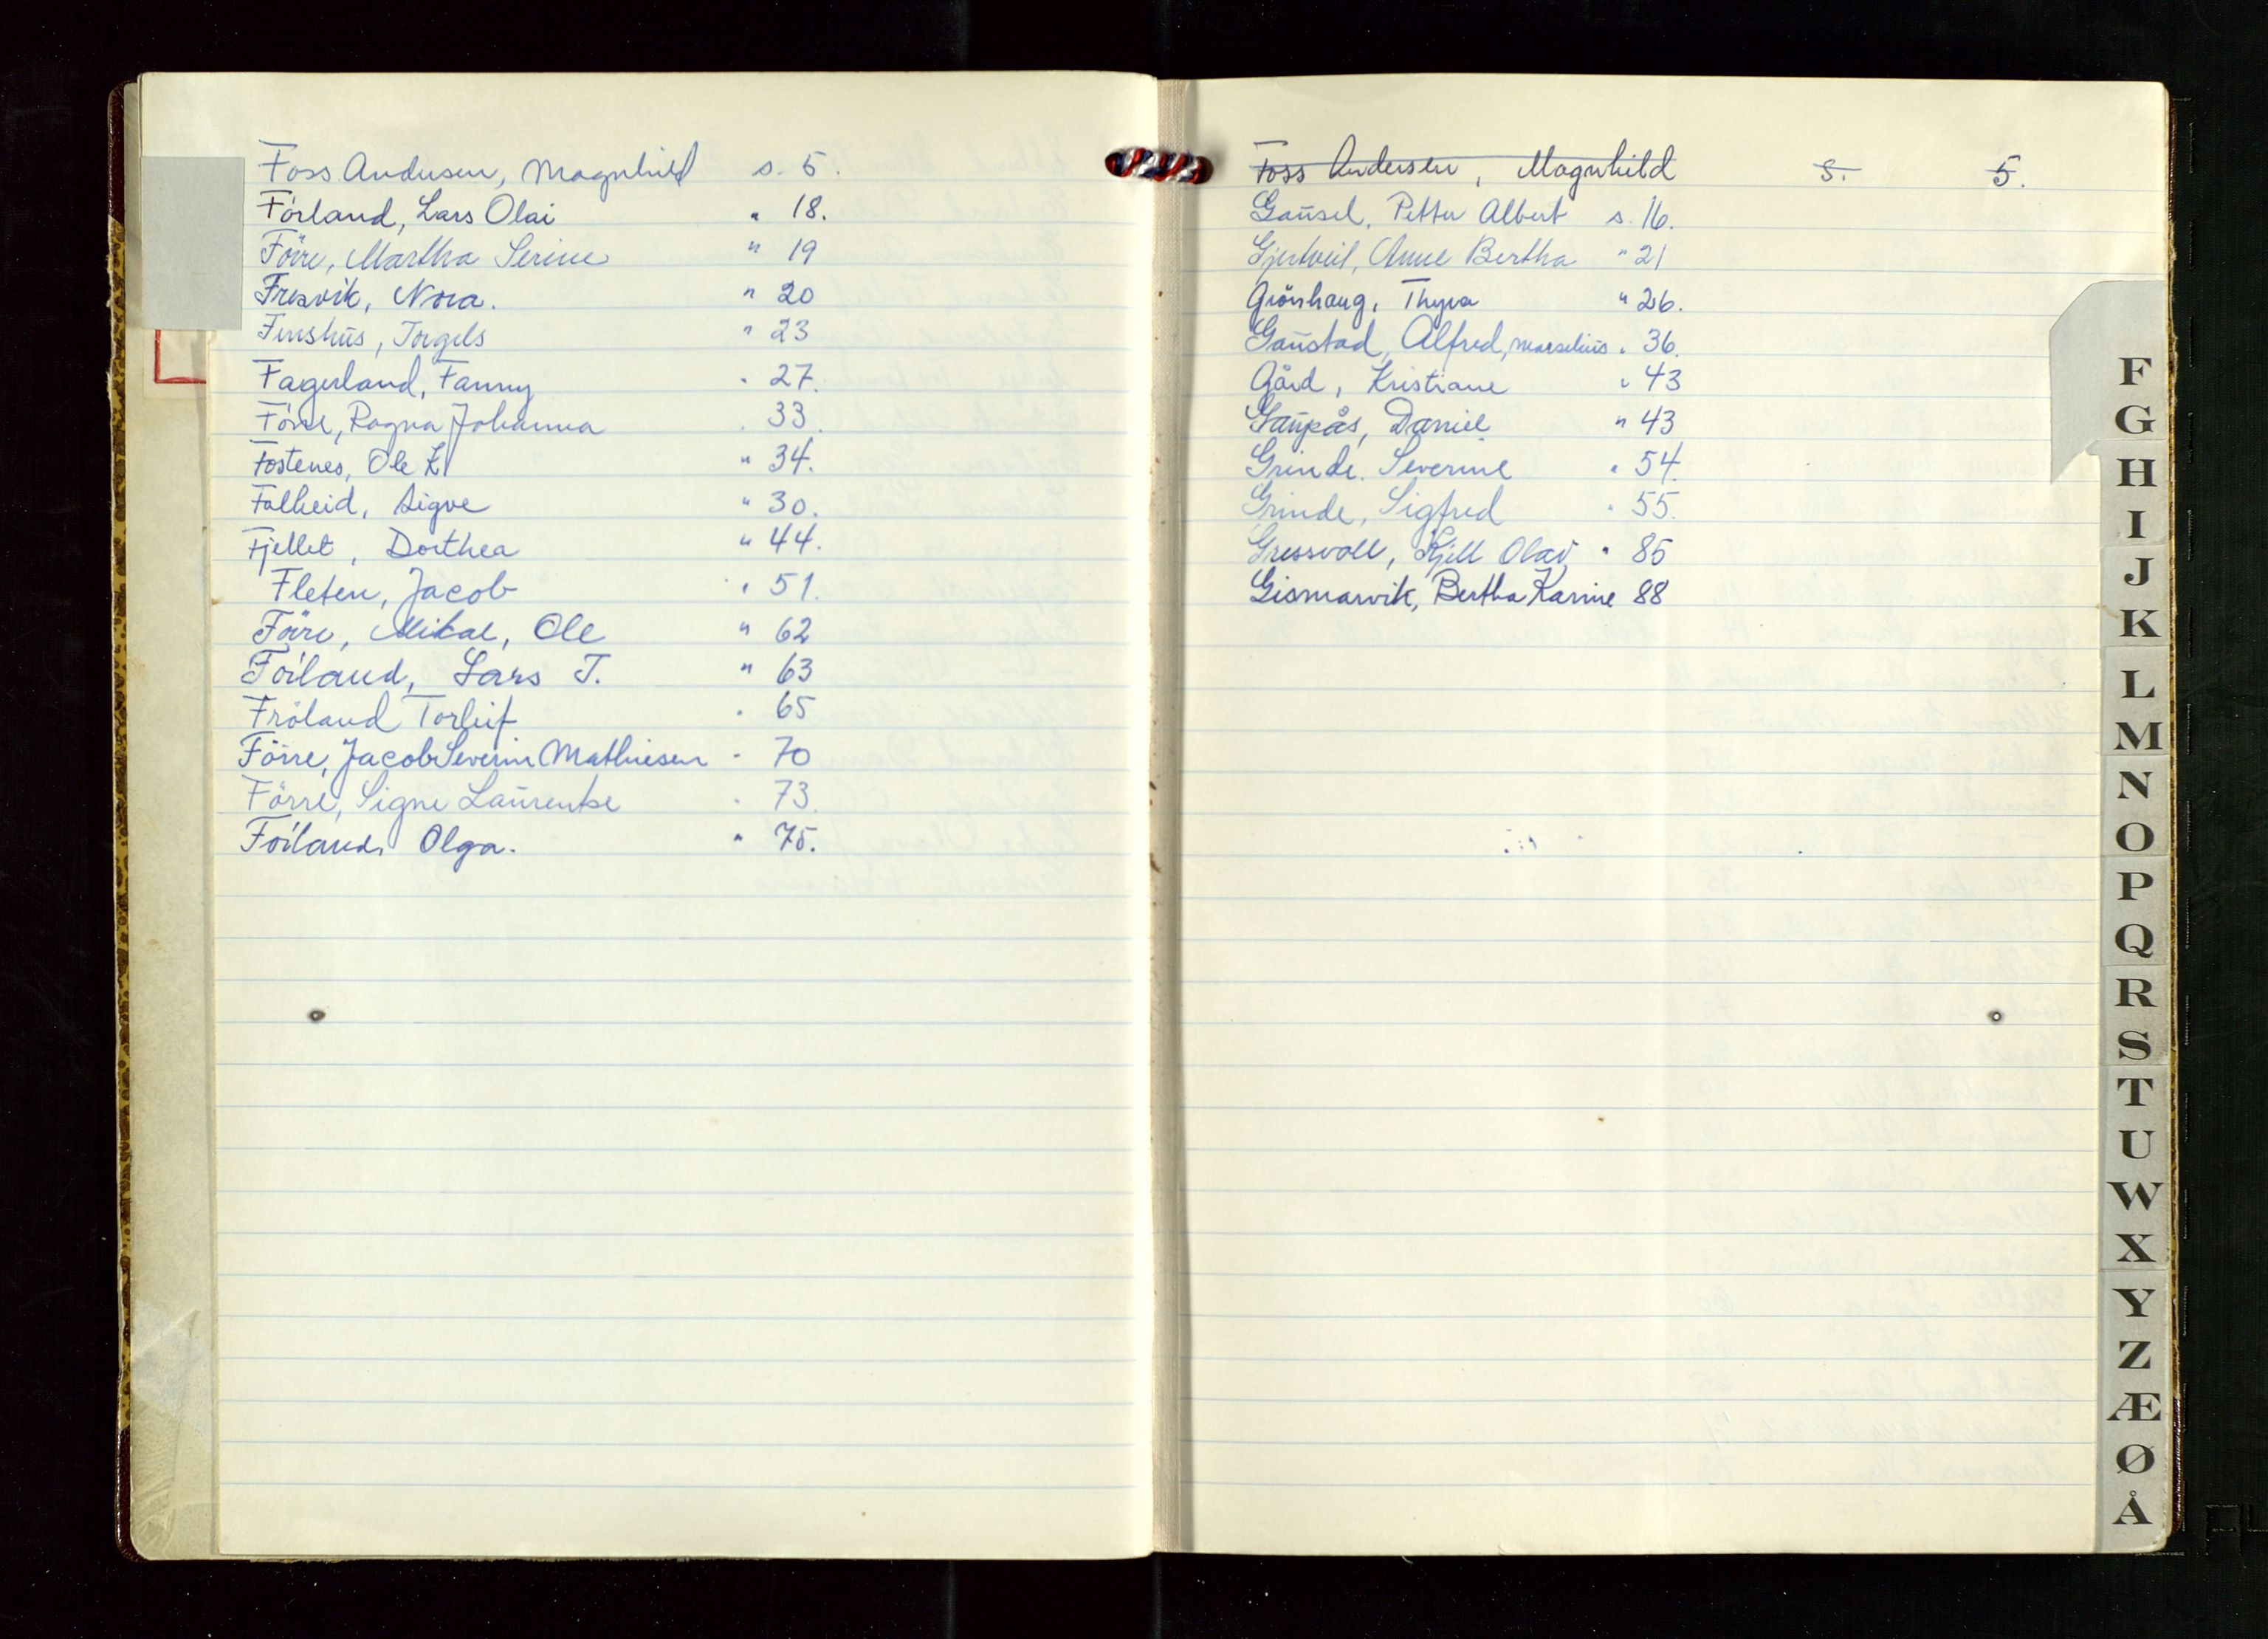 Foss Andersen, Magnhild s. 5.
Förland, Lars Olai " 18.
Förre, Martha Serine " 19
Fresvik, Nora. " 20
Finshus, Torgils " 23
Fagerland, Fanny " 27.
Förre, Ragna Johanna " 33.
Fostenes, Ole K. " 34.
Falheid, Sigve " 30.
Fjellet, Dorthea " 44.
Fleten, Jacob " 51.
Förre, Mikal, Ole " 62
Förland, Lars T. " 63
Fröland Torleif " 65
Förre, Jacob Severin Mathiesen " 70
Förre, Signe Laurentse " 73.
Förland, Olga. " 75.
Foss Andersen, Magnhild s. 5.
Gausel, Petter Albert s. 16.
Anne Bertha " 21
Grönhaug, Thyra " 26.
Gaustad, Alfred, Marselius " 36.
Gård, Kristiane " 43
Gaupås, Daniel " 43
Grinde. Severine " 54.
Grinde, Sigfred " 55.
Gressvoll, Kjell Olav " 85
Gismarvik, Bertha Karine 88
F
G
H
I
J
K
L
M
N
O
P
Q
R
S
T
U
W
X
Y
Z
Æ
Ø
Å